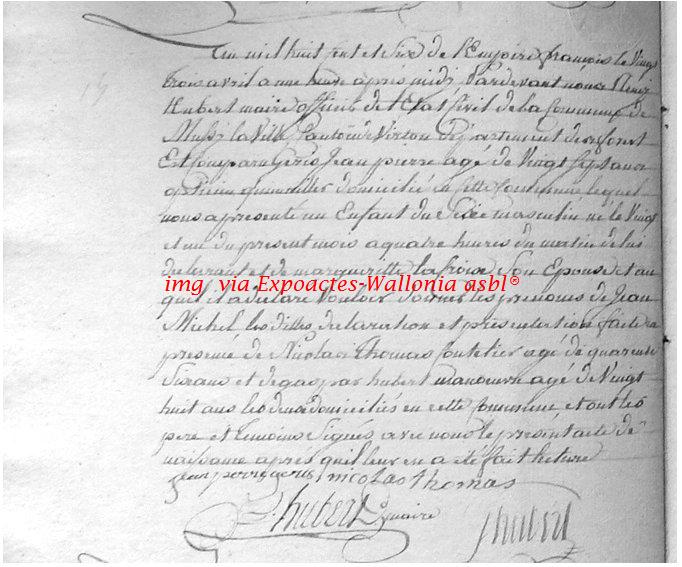 L'an mil huit cent et six de l'Empire français le vingt
trois avril a une heure après midi Pardevant nous
Hubert maire officier de l'Etat Civil de la Commune de
Mussy la Ville Canton de Virton Département des forets
Est Comparu Jean pierre agé de Vingt sept ans
domicilié en cette Commune lequel
nous a presenté un Enfant du sexe masculin né le Vingt
et un du present mois a quatre heures du matin de lui
declarant et de marguerite lacroix son Epouse et au
quel il a declaré Vouloir donner les prenoms de Jean
Michel les dittes declaration et presentation faites en
presence de Nicolas Thomas agé de quarente
six ans et de gaspar hubert manoeuvre agé de Vingt
huit ans les deux domiciliés en cette Commune, et ont les
pere et temoins signés avec nous le present acte de
naissance après qu'il leur en a eté fait lecture
jean pierre nicolas thomas
hubert maire
hubert
img via Expoactes-Wallonia asbl®